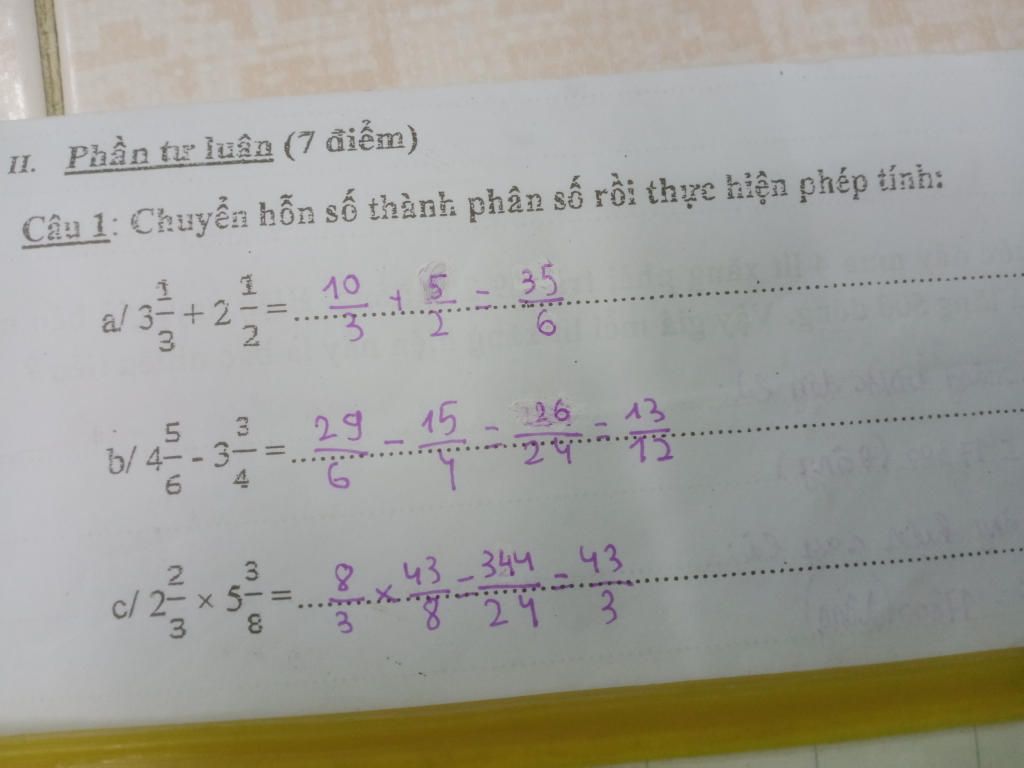 II. Phần tự luân (7 điểm)
Câu 1: Chuyển hỗn số thành phân số rồi thực hiện phép tính:
a/ 3 1/3 + 2 1/2 = 10/3 + 5/2 = 35/6
b/ 4 5/6 - 3 3/4 = 29/6 - 15/4 = 26/24 = 13/12
c/ 2 2/3 × 5 3/8 = 8/3 × 43/8 = 344/24 = 43/3